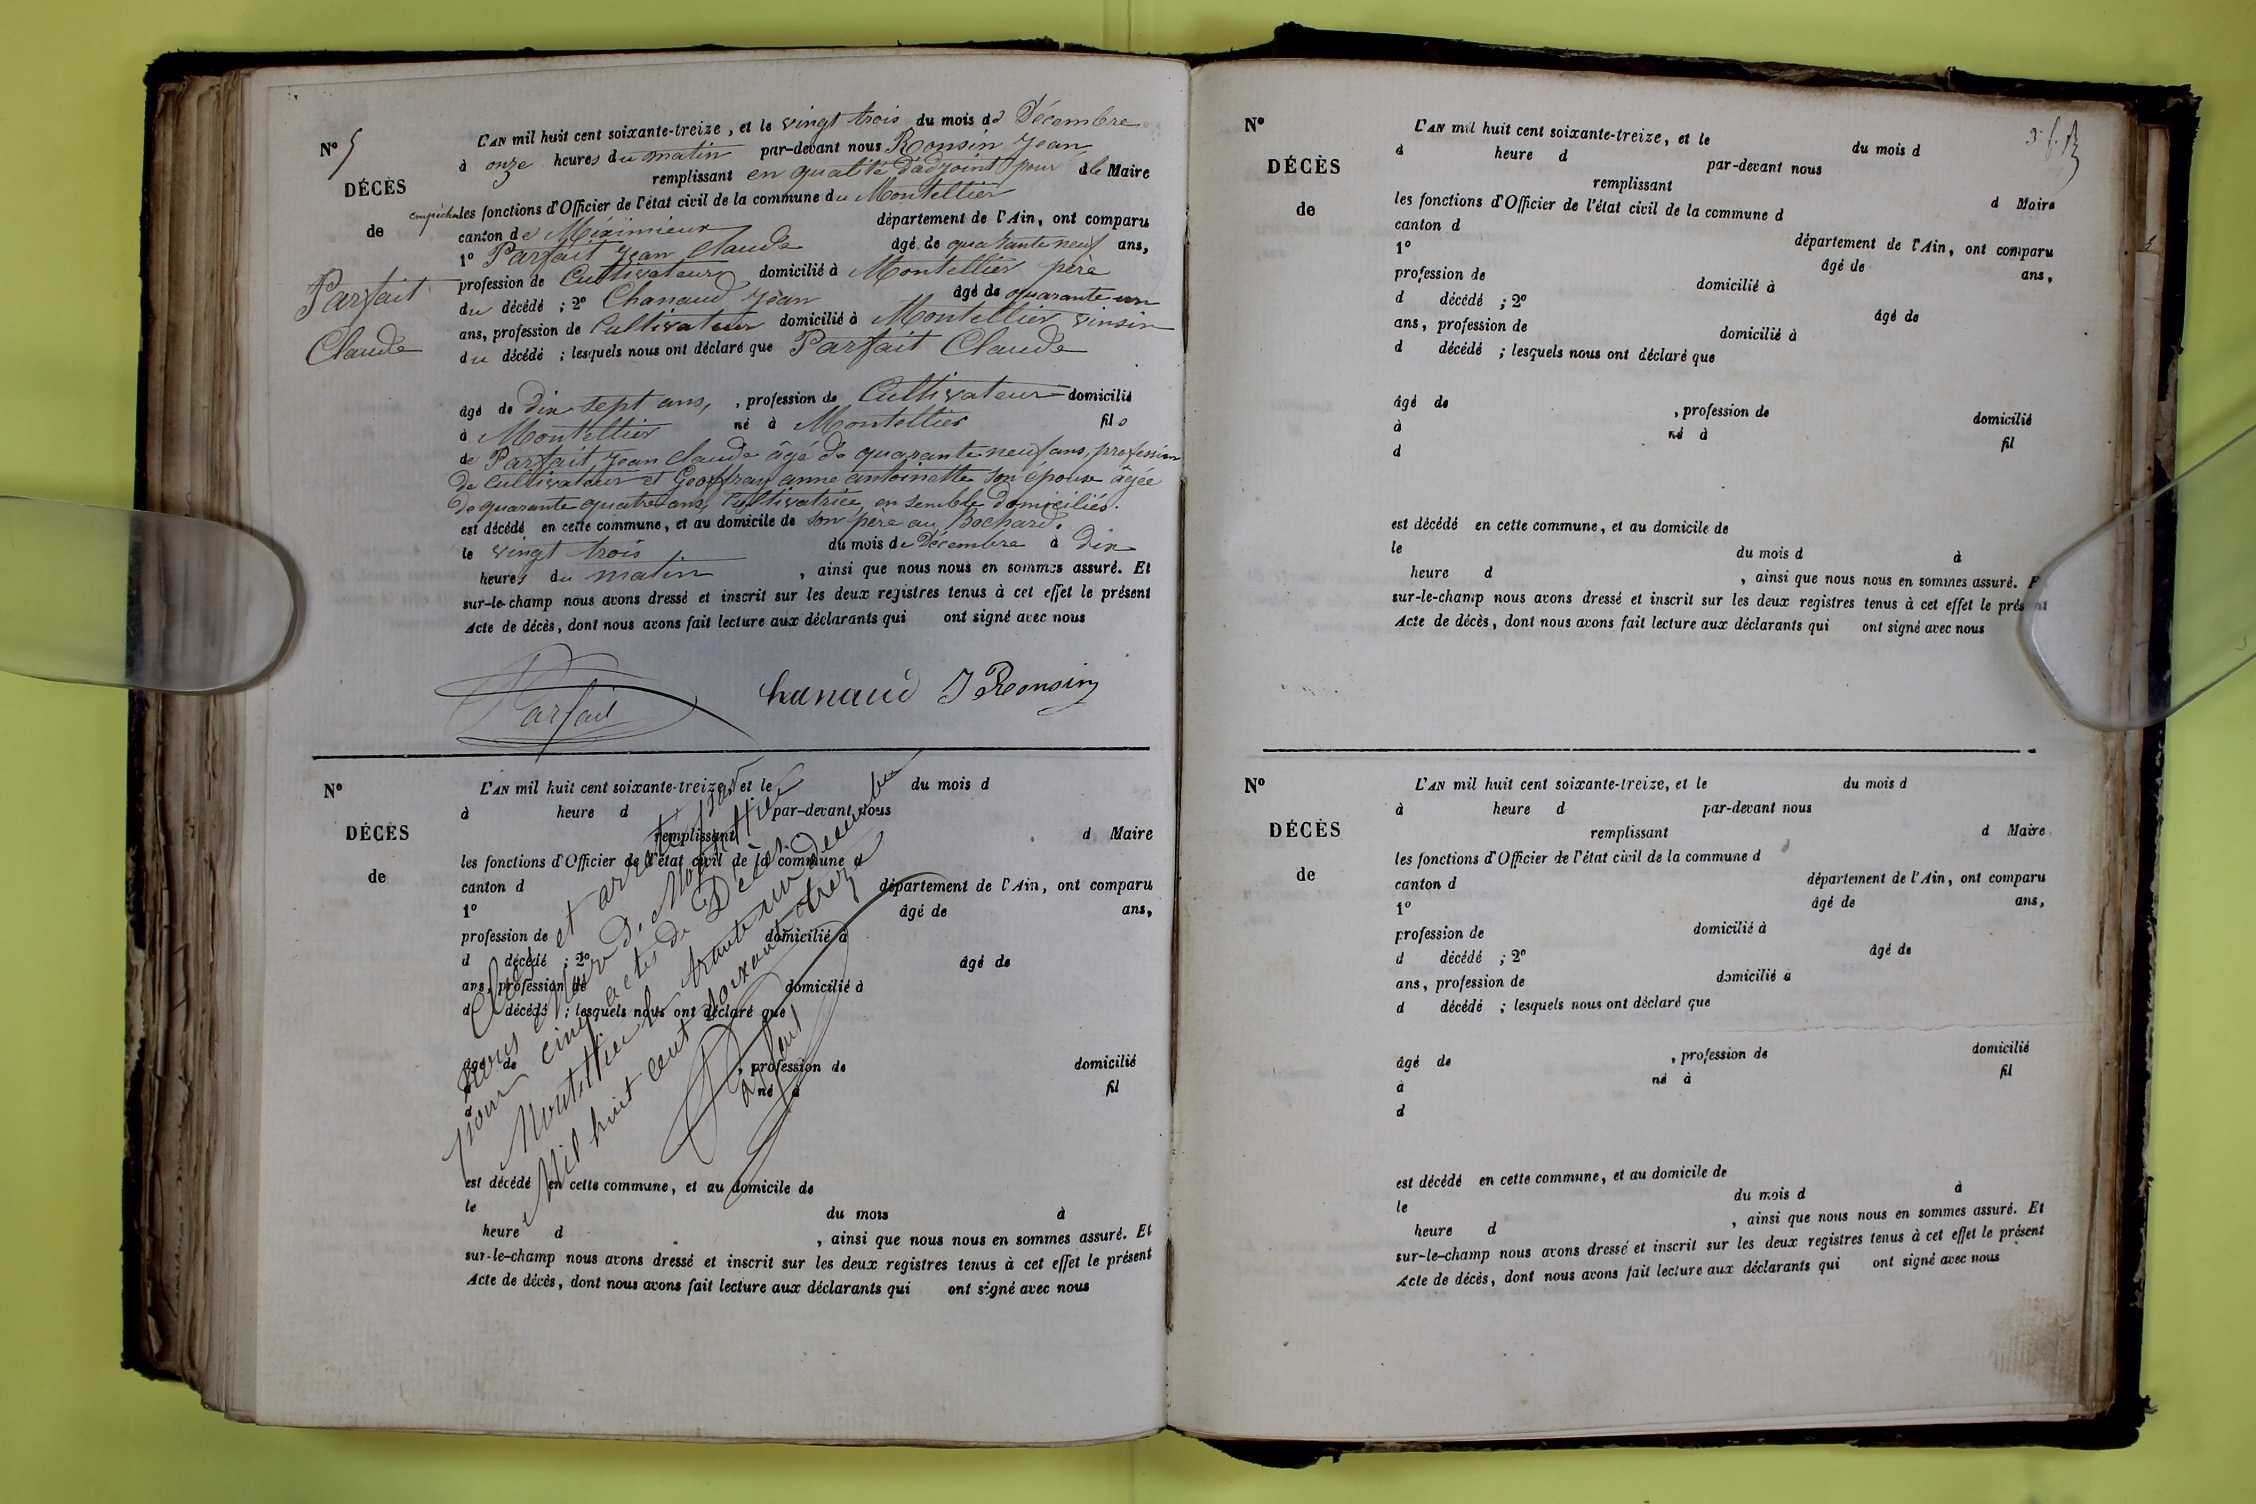 N° 5
DÉCÈS
de
Parfait
Claude
L'AN mil huit cent soixante-treize, et le vingt trois du mois de Décembre
à onze heures du matin par-devant nous Ronsin Jean
remplissant en qualité d'adjoint pour le Maire
empêché les fonctions d'Officier de l'état civil de la commune du Montellier
canton de Méximieux département de l'Ain, ont comparu
1° Parfait Jean Claude âgé de quarante neuf ans,
profession de Cultivateur domicilié à Montellier père
du décédé ; 2° Chanaud Jean âgé de quarante un
ans, profession de Cultivateur domicilié à Montellier vinsin
du décédé ; lesquels nous ont déclaré que Parfait Claude
âgé de Dix sept ans, , profession de Cultivateur domicilié
à Montellier né à Montellier fils
de Parfait Jean Claude âgé de quarante neuf ans, profession
de Cultivateur et Geoffray anne antoinette son épouse âgée
de quarante quatre ans, Cultivatrice en semble domiciliés.
est décédé en cette commune, et au domicile de son père au Bochard.
le vingt trois du mois de Décembre à Dix
heures du matin , ainsi que nous nous en sommes assuré. Et
sur-le-champ nous avons dressé et inscrit sur les deux registres tenus à cet effet le présent
Acte de décès, dont nous avons fait lecture aux déclarants qui ont signé avec nous
Parfait Chanaud J Ronsin
N°
DÉCÈS
de
L'AN mil huit cent soixante-treize, et le du mois d
à heure d par-devant nous
remplissant d Maire
les fonctions d'Officier de l'état civil de la commune d
canton d département de l'Ain, ont comparu
1° âgé de ans,
profession de domicilié à
d décédé ; 2° âgé de
ans, profession de domicilié à
d décédé ; lesquels nous ont déclaré que
âgé de , profession de domicilié
à né à fil
d
est décédé en cette commune, et au domicile de
le du mois à
heure d , ainsi que nous nous en sommes assuré. Et
sur-le-champ nous avons dressé et inscrit sur les deux registres tenus à cet effet le présent
Acte de décès, dont nous avons fait lecture aux déclarants qui ont signé avec nous
Clos et arrêté par
nous Maire du Montellier
pour cinq actes de Décès.
Montellier le trente un décembre
Mil huit cent soixante treize
Parfait
N°
DÉCÈS
de
L'AN mil huit cent soixante-treize, et le du mois d
à heure d par-devant nous
remplissant d Maire
les fonctions d'Officier de l'état civil de la commune d
canton d département de l'Ain, ont comparu
1° âgé de ans,
profession de domicilié à
d décédé ; 2° âgé de
ans, profession de domicilié à
d décédé ; lesquels nous ont déclaré que
âgé de , profession de domicilié
à né à fil
d
est décédé en cette commune, et au domicile de
le du mois d à
heure d , ainsi que nous nous en sommes assuré. E
sur-le-champ nous avons dressé et inscrit sur les deux registres tenus à cet effet le présent
Acte de décès, dont nous avons fait lecture aux déclarants qui ont signé avec nous
N°
DÉCÈS
de
L'AN mil huit cent soixante-treize, et le du mois d
à heure d par-devant nous
remplissant d Maire
les fonctions d'Officier de l'état civil de la commune d
canton d département de l'Ain, ont comparu
1° âgé de ans,
profession de domicilié à
d décédé ; 2° âgé de
ans, profession de domicilié à
d décédé ; lesquels nous ont déclaré que
âgé de , profession de domicilié
à né à fil
d
est décédé en cette commune, et au domicile de
le du mois d à
heure d , ainsi que nous nous en sommes assuré. Et
sur-le-champ nous avons dressé et inscrit sur les deux registres tenus à cet effet le présent
Acte de décès, dont nous avons fait lecture aux déclarants qui ont signé avec nous